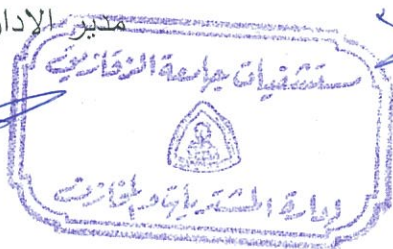 مدير الادار
مستشفيات جامعة الزقازيق
إدارة المشتريات والمخازن